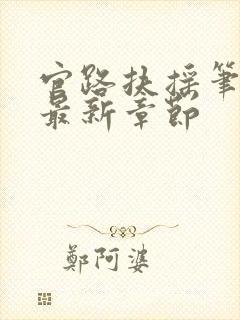 官路扶摇筆
最新章節
鄭阿婆